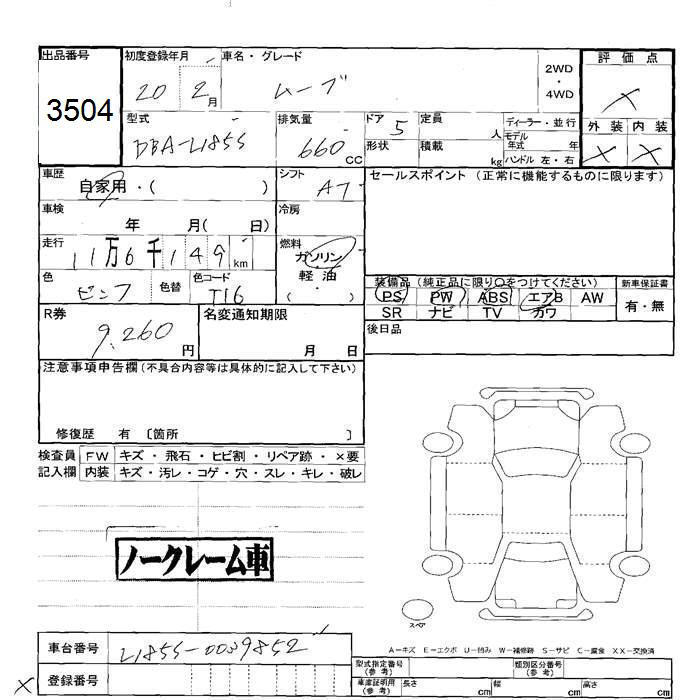 出品番号 初度登録年月 車名・グレード 2WD・4WD 評価点
3504 20 2月 ムーブ ×
型式 排気量 ドア 定員 ディーラー・並行 外装 内装
DBA-L185S 660cc 5 人 モデル年式 年 × ×
形状 積載 kg ハンドル 左・右
車歴 シフト セールスポイント (正常に機能するものに限ります)
自家用・( ) AT
車検 冷房
年 月( 日)
走行 燃料
11万6千149km ガソリン
軽油
( ・ )
色 色替 色コード
ピンク T16
装備品 (純正品に限り○をつけてください) 新車保証書
PS PW ABS エアB AW 有・無
SR ナビ TV カワ
R券 名変通知期限 後日品
9,260円 月 日
注意事項申告欄(不具合内容等は具体的に記入して下さい)
修復歴 有 〔箇所 〕
検査員 FW キズ・飛石・ヒビ割・リペア跡・×要
記入欄 内装 キズ・汚レ・コゲ・穴・スレ・キレ・破レ
ノークレーム車
スペア
A-キズ E-エクボ U-凹み W-補修跡 S-サビ C-腐食 XX-交換済
車台番号 L185S-0039852
× 登録番号
型式指定番号(参考) 類別区分番号(参考)
車庫証明用(参考) 長さ cm 幅 cm 高さ cm